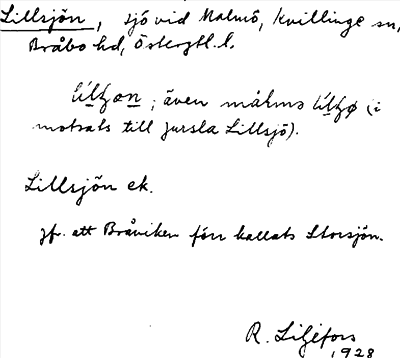 Lillsjön, sjö vid Malmö, Kvillinge sn,
Bråbo hd, Östergtl. l.
även målms (i
motsats till Jursla Lillsjö).
Lillsjön ek.
jfr. att Bråviken förr kallats Storsjön.
R. Liljefors
1928